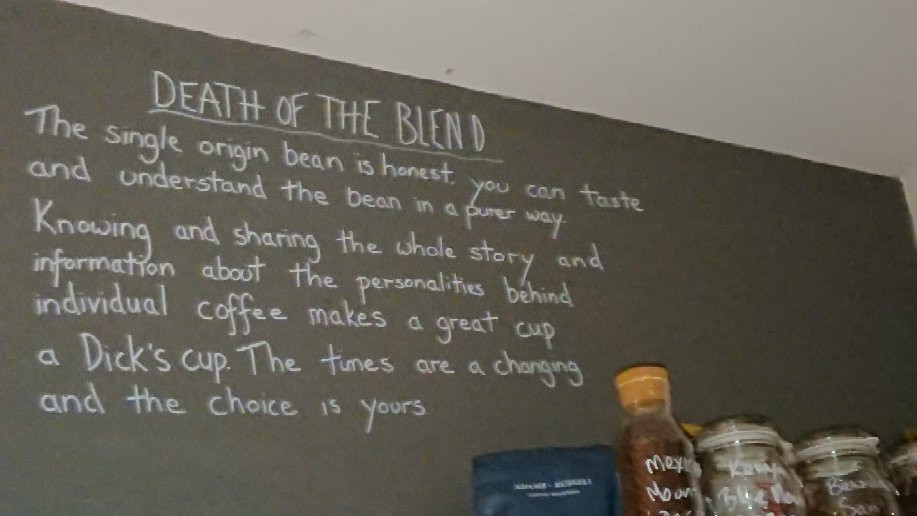 DEATH OF THE BLEND
The single origin bean is honest. you can taste
and understand the bean in a purer way.
Knowing and sharing the whole story and
information about the personalities behind
individual coffee makes a great cup
a Dick's cup. The times are a changing
and the choice is yours
ADAMS + RUSSELL
Kenya
Blue